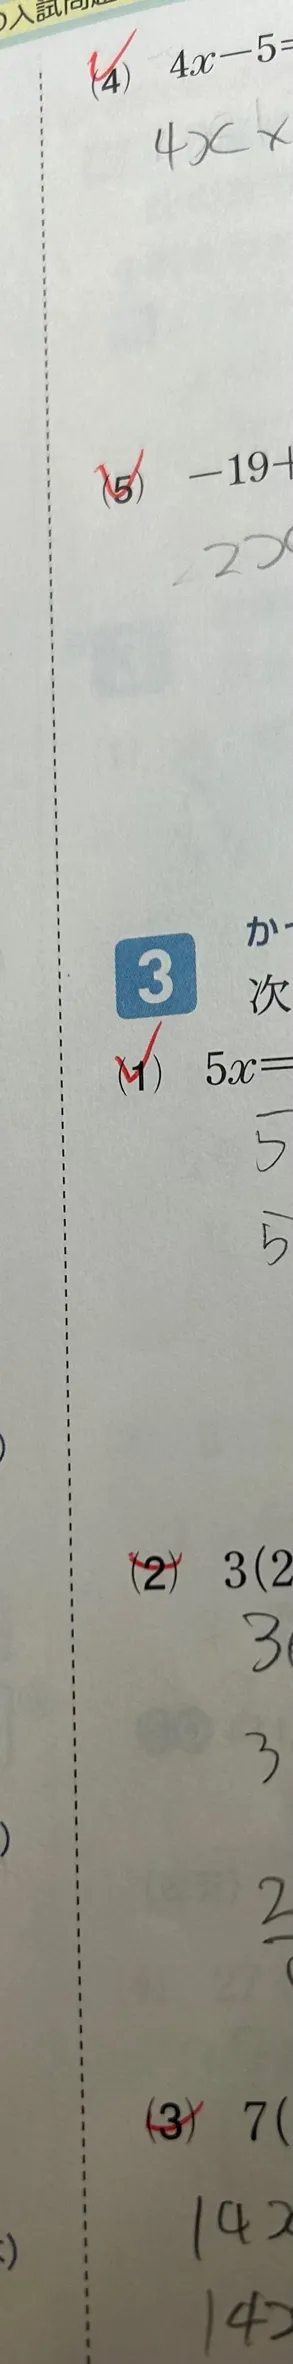 の入試問題
(4) 4x-5=
4x x
(5) -19+
2x
3 か
次
(1) 5x=
5
5
(2) 3(2
3(
3
2
(3) 7(
14x
14x